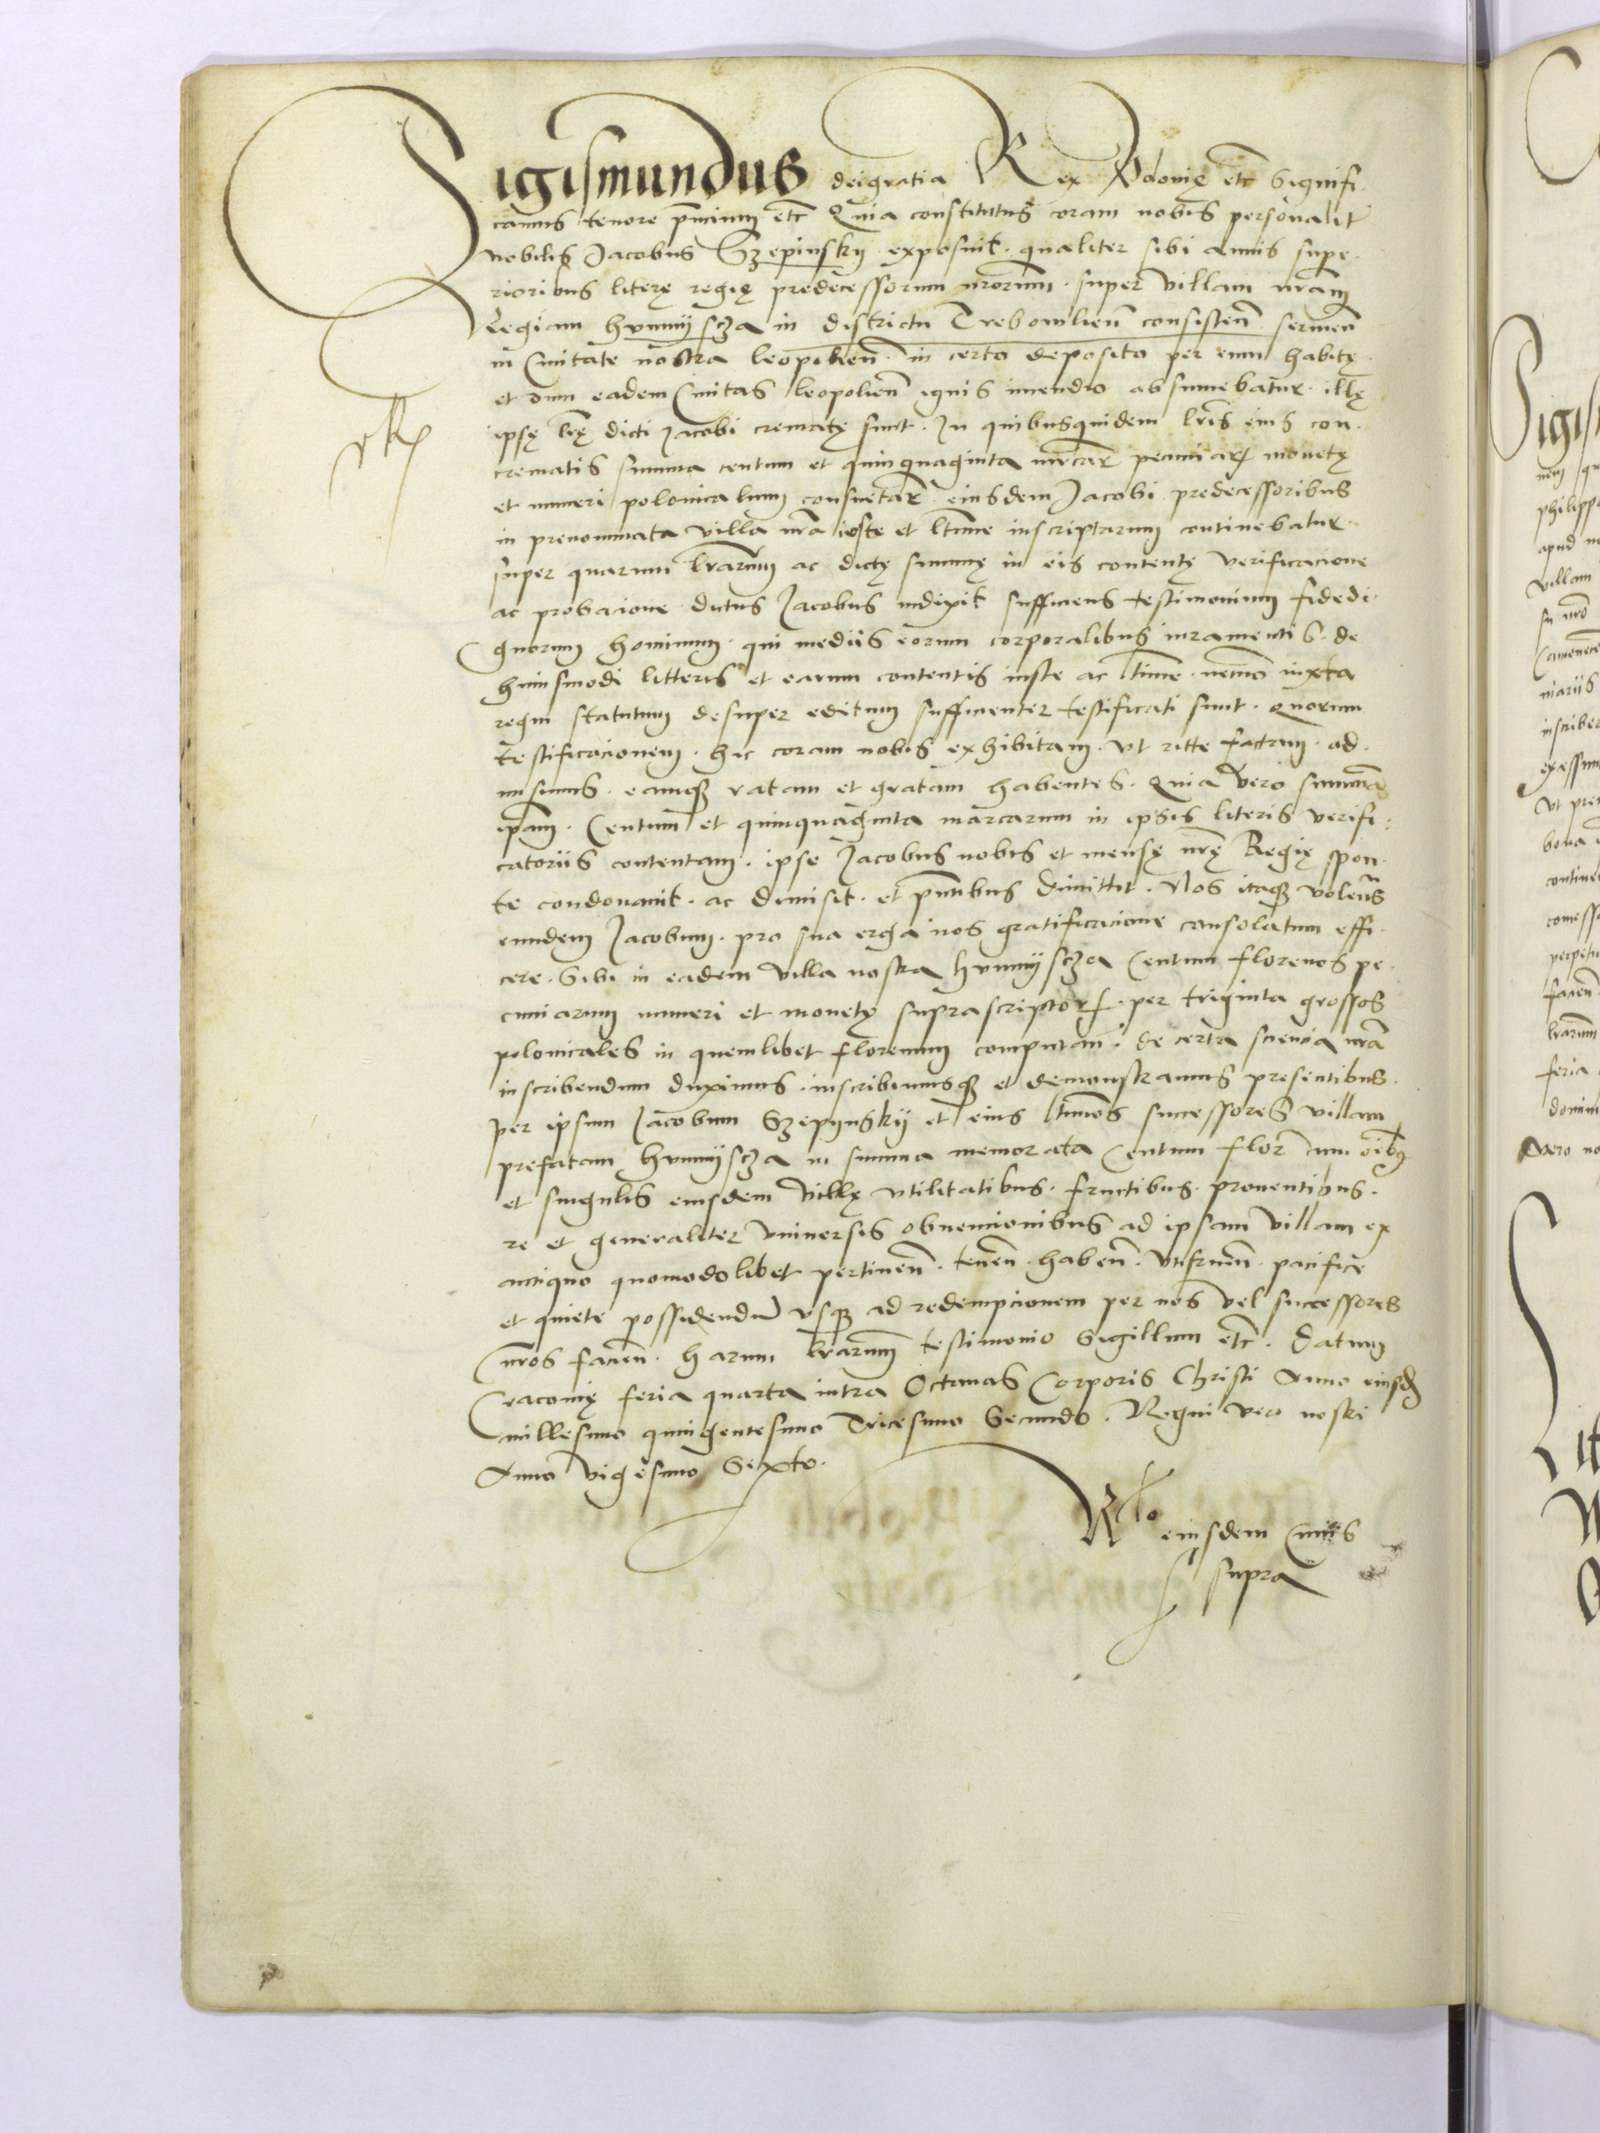 Sigismundus deigratia Rex Polonię etc̄ Signifi-
camus tenore p̄ncium etc̄ Quia constitutus coram nobis personalit̄
nobilis Jacobus Szepinskÿ exposuit. qualiter sibi annis supe-
rioribus literę regię predecessorum nr̄orum. super villam nr̄am
Regiam hvnnÿscza in districtu Trebowlien̄ consisten̄
in Ciuitate nostra leopolien̄. in certo deposito per eum habitę
et dum eadem Ciuitas leopolien̄ ignis incendio absumebatur. illę
ipsę lr̄ę dicti Jacobi crematę sunt. In quibusquidem lr̄is eius con-
crematis summa centum et quinquaginta mr̄car̄ pecuniar̄ monetę
et numeri polonicalium consuetar̄. eiusdem Jacobi predecessoribus
in prenominata villa nr̄a iuste et ltīme inscriptarum continebatur.
super quarum lr̄arum ac dictę summę in eis contentę verificacione
ac probacione dictus Jacobus induxit sufficiens testimonium fidedi-
gnorum hominum. qui mediis eorum corporalibus iuramentis. de
huiusmodi litteris et earum contentis iuste ac ltīme iuxta
regni statutum desuper editum sufficienter testificati sunt. Quorum
testificacionem. hic coram nobis exhibitam. vt ritte factam. ad-
misimus. eamq̄ ratam et gratam habentes. Quia vero summam
ip̄am. Centum et quinquaginta marcarum in ipsis literis verifi-
catoriis contentam. ipse Jacobus nobis et mensę nr̄ę Regię spon-
te condonauit. ac dimisit. et p̄ntibus dimittit. Nos itaq̄ volen̄s
eundem Jacobum. pro sua erga nos gratificacione consolatum effi-
cere. Sibi in eadem villa nostra hvnnÿscza Centum florenos pe-
cuniarum numeri et monetę suprascriptor̄. per triginta grossos
polonicales in quemlibet florenum computan̄. de certa sciencia nr̄a
inscribendum duximus. inscribimusq̄ et demonstramus presentibus.
per ipsum Jacobum Szepÿnskÿ et eius ltīmos successores villam
prefatam hvnnÿscza in summa memorata Centum flor̄ cum oībus
et singulis eiusdem villę vtilitatibus. fructibus. prouentibus.
re et generaliter vniuersis obuencionibus ad ipsam villam ex
antiquo quomodolibet pertinen̄. tenen̄. haben̄. vtifruen̄. pacifice
et quiete possidendu̅ vsq̄ ad redempcionem per nos vel successores
nr̄os facien̄. harum lr̄arum testimonio Sigillum etc̄. Datum
Cracouię feria quarta intra Octauas Corporis Christi Anno eiusd̄
millesimo quingentesimo Tricesimo Secundo. Regni vero nostri
Anno vigesimo Sexto.
Rlō eiusdem
supra